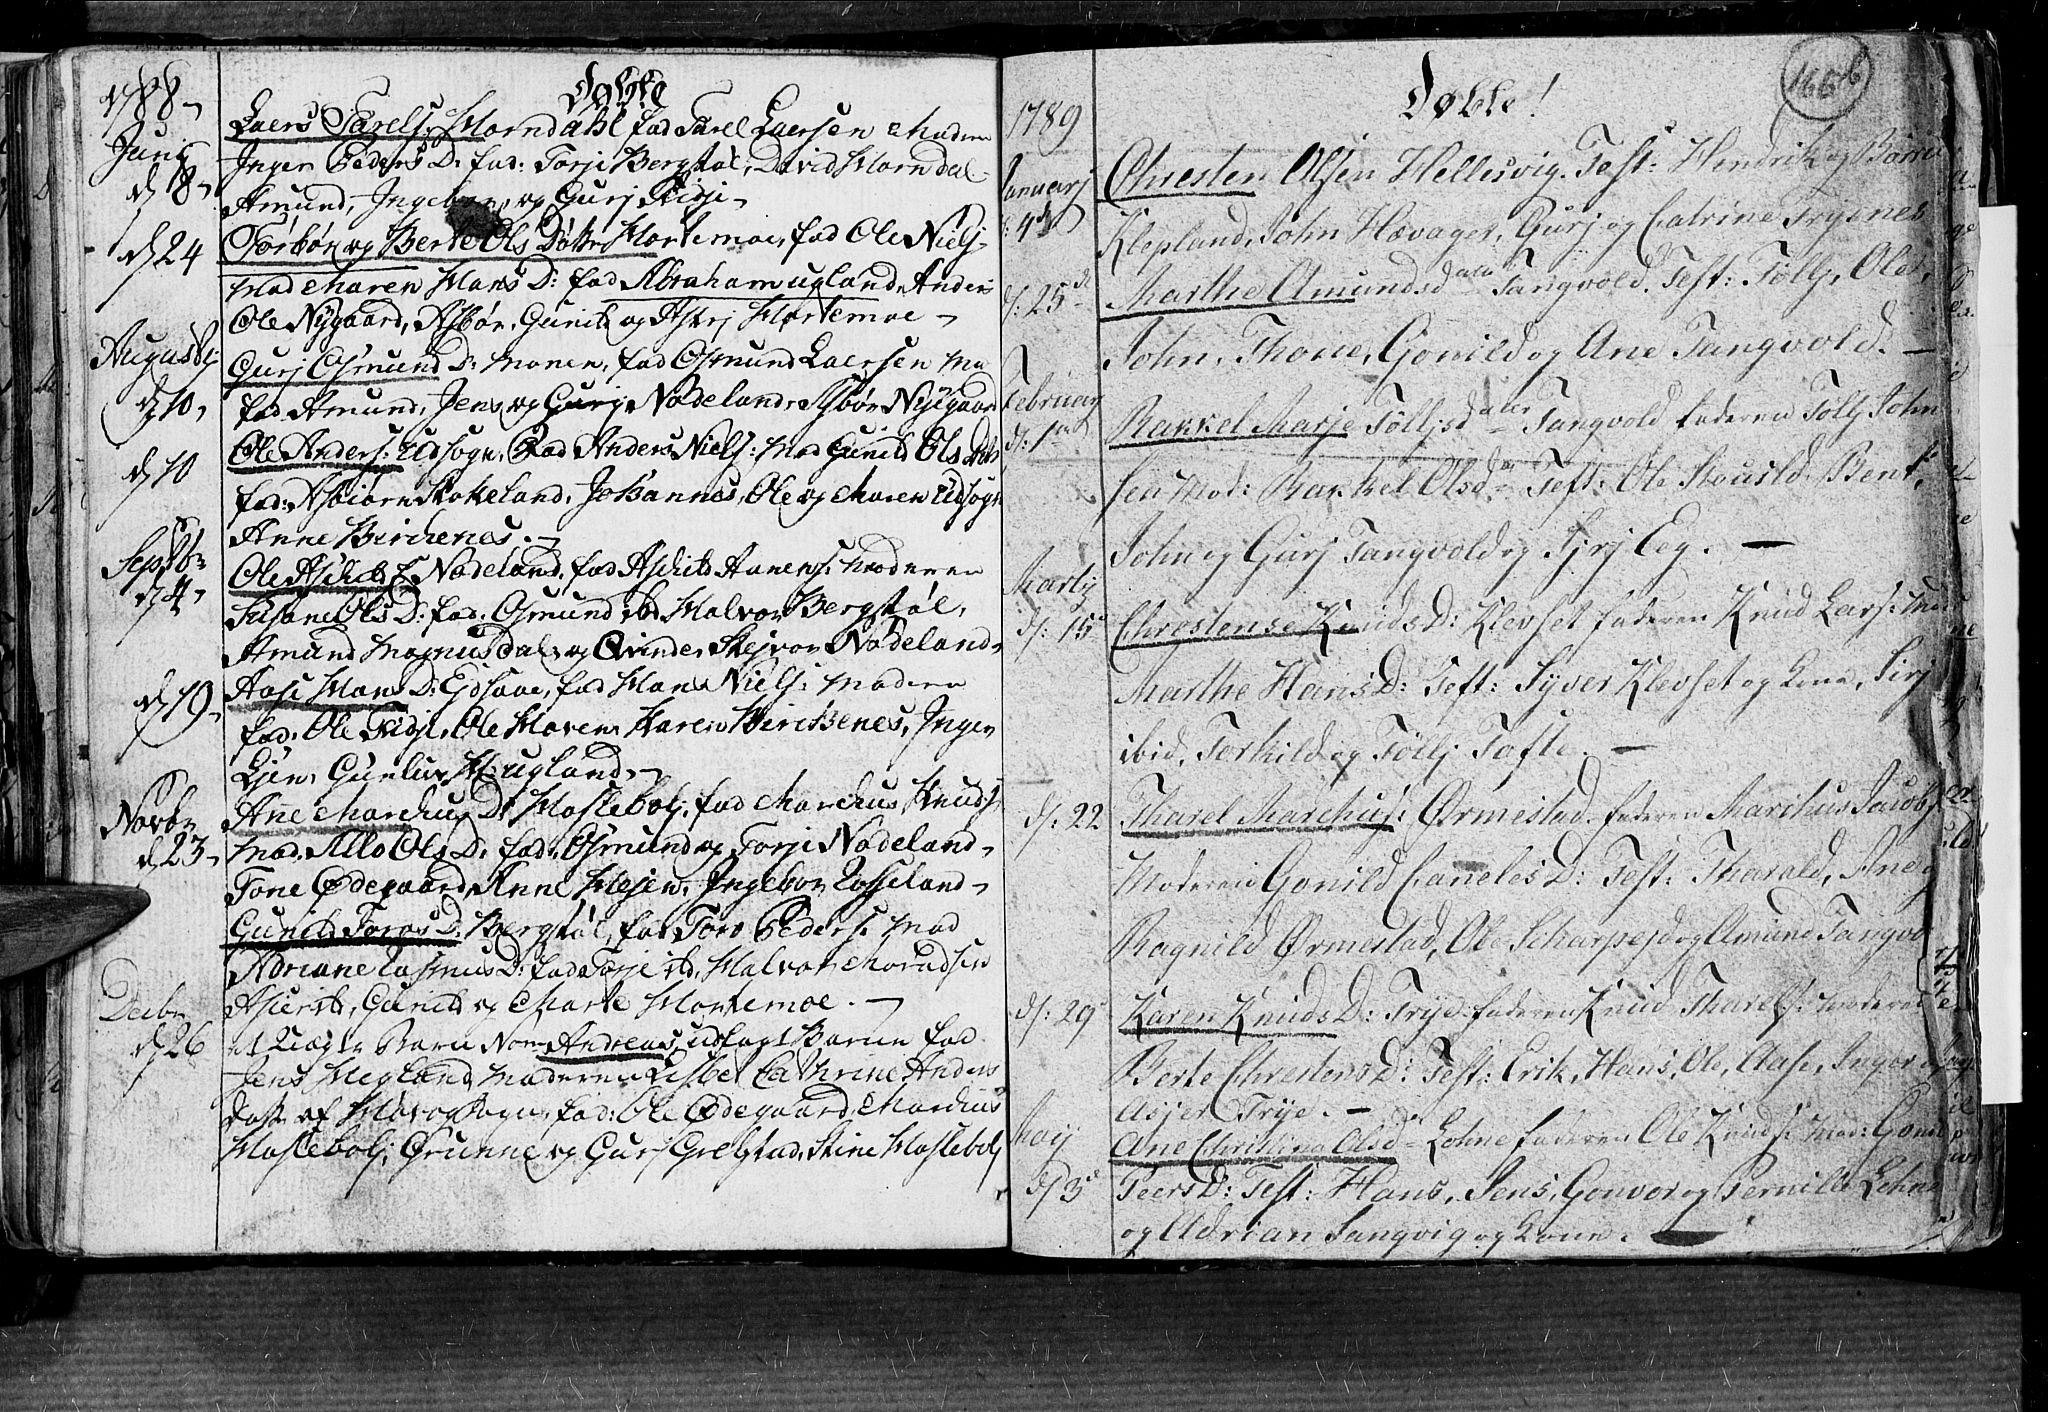 1788
Døbte
Laers Tarels: Horndahl fad Tarel Laersen Moderen
Junj
d 8
Inger Peders D: fad: Torje Bergstøl, David Horndal
Amund, Ingebor, og Gurj Kidji
d 24
Torbør og Berte Ols Døttr Hortemoe, fad Ole Niels:
Mod Maren Hans D: fad Abraham ugland, Anders
Ole Nygaard, Asbør, Gunild og Astrj Hortemoe
Augustj
Gurj Osmund D: Monen, fad Osmund Laersen Mo
d 10
fad Amund, Jens og Gurj Nodeland, Asbør Nygaard
d 10
Ole Anders: Udsogn, fad Anders Niels: Mod Gunild Ols Dat
fad: Asbiørn Stokeland, Johannes, Ole og Maren Udsogn
Anne Birchenes.
Septbr
d 4
Ole Aschilds: Nodeland, fad Aschild Aanens: Moderen
Susane Ols D: fad: Osmund ibd Halvor Bergstøl,
Amund Mognusdal og Qvinde, Skejvor Nodeland
d 19
Aase Hans D: Edsaae, fad Hans Niels: Moderen
fad: Ole Kidji, Ole Hoven, Karen Birchenes, Inger
Lien, Gunluv Hougland
Novbr
d 23
Anne Marchus D: Hoslebol, fad Marchus Knuds:
Mod. Allo Ols D: fad: Osmund og Torje Nodeland
Tone Ødegaard, Anne Hejen, Ingebor Losseland
Gunild Toros D: Bergstøl, fad Tore Peders: Mod
Adriane Rasmus D: fad Torje ibd, Halvor Moradsen
Decbr
d 26
Asierid, Gunild og Marte Hortemoe.
et Uægte Barn Nom: Andreas, udlagt Barne fad
Jens Hegland Moderen Lisbet Cathrine Anders
datt af Høvog Sogn, fad: Ole Ødegaard, Marchus
Hoslebol, Grunne og Gurj Grebstad, Stine Hoslebol
166 b
1789
Døbte!
Januarj
d: 4de
Chresten Olsen Hellesvig. Test: Hendrik og Børre
Klepland, John Hovager, Gurj og Catrine Trysnes
d: 25de
Marthe Amundsdatter Tangvold. Test: Tollj, Ole,
John, Thone, Gonild og Ane Tangvold.
Februar
d: 1
Rakkel Marje Tølljsdatter Tangvold Faderen Tollj John
sen Mod: Rakkel Olsd Test: Ole Skousld. Bent,
John og Gurj Tangvold og Syrj Eeg.
Martij
d: 15
Chrestense Knuds D: Klevset Faderen Knud Lars: Mod
Marthe Hans D: Test: Syver Klevset og Kone, Sirj
ibid, Torkild og Tollj Tofte.
d: 22
Tharel Marchus: Ørmestad. Faderen Marchus Jacobs:
Moderen Gonild Caneles D: Test: Tharald, Ane og
Ragnild Ørmestad, Ole Scharpejd og Amund Tangvo
d: 29
Karen Knuds D: Trye Faderen Knud Tharels: Moderen
Berte Chrestens D: Test: Erik, Hans, Ole, Aase, Inger og
Asjer Trye.
Maij
Ane Christina Olsd Lohne Faderen Ole Knuds: Mod: Gonil
d 3
Peers D: Test: Hans, Jens, Gonvor og Pernille Lohne
og Adrian Langvig og Kone.